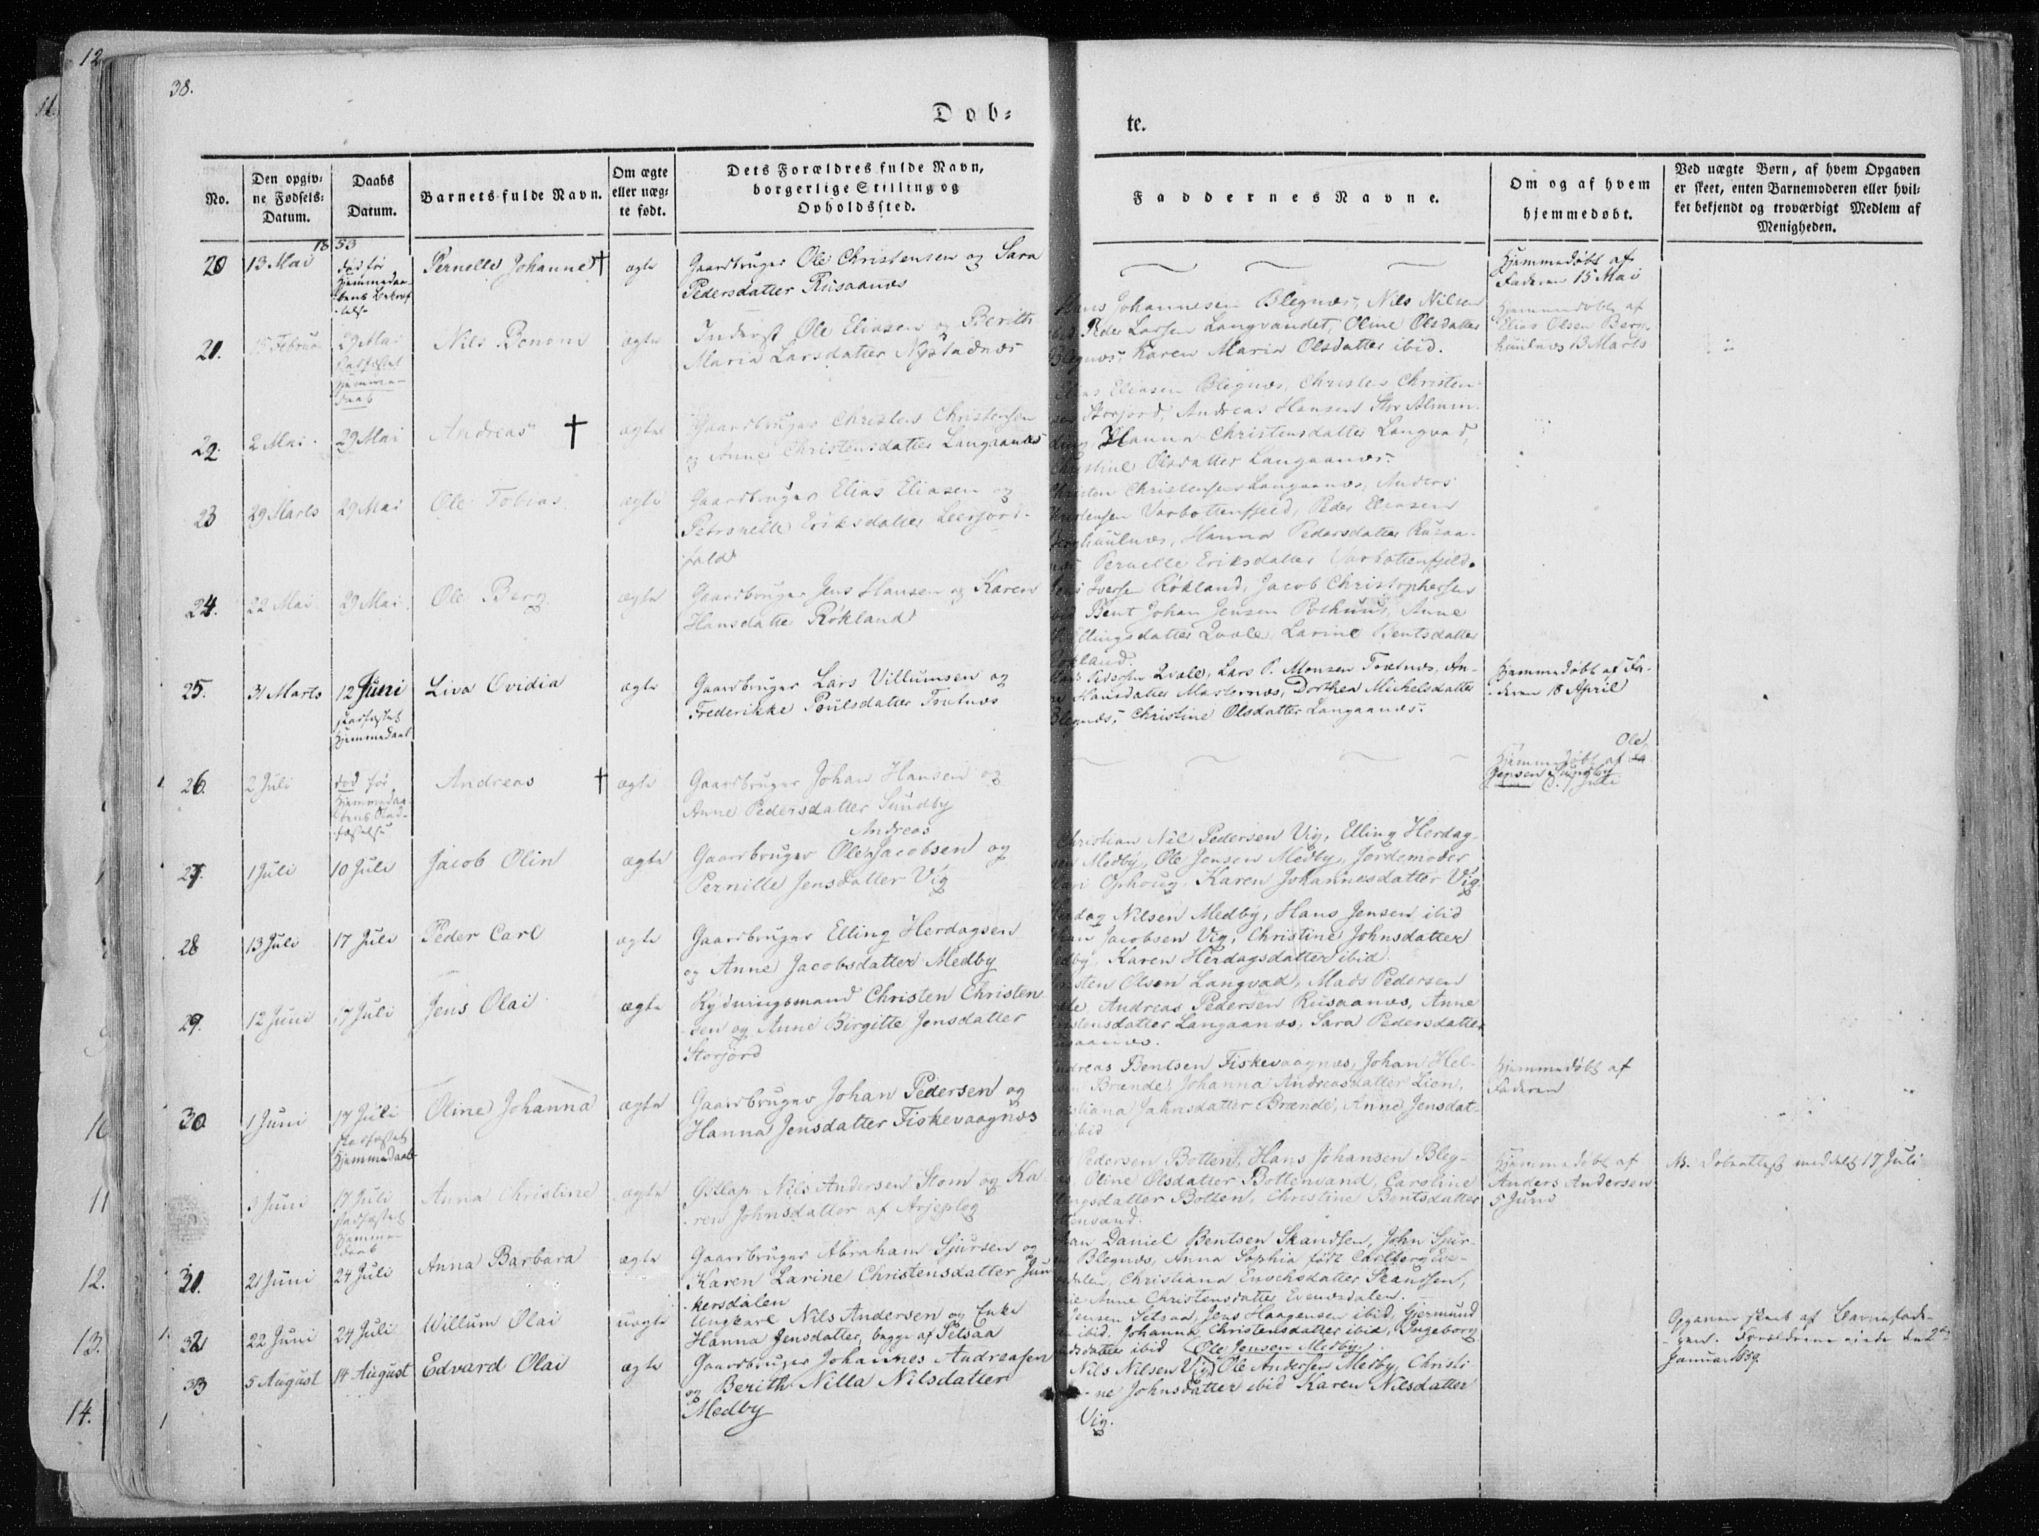 12
38.
11.
Døb=
te.
No.
Den opgiv=
ne Fødsels=
Datum.
Daabs
Datum.
Barnets fulde Navn.
Om ægte
eller uæg=
te født.
Dets Forældres fulde Navn,
borgerlige Stilling og
Opholdssted.
Faddernes Navne.
Om og af hvem
hjemmedøbt.
Ved uægte Børn, af hvem Opgaven
er skeet, enten Barnemoderen eller hvil=
ket bekjendt og troværdigt Medlem af
Menigheden.
1853
20 13 Mai død før Hjemmedaa- Pernelle Johanne † ægte Gaardbruger Ole Christensen og Sara
Pedersdatter Rusaanæs
Hjemmedøbt af
Faderen 15 Mai
21. Februar 29 Mai Nils Bonom ægte Inderst Ole Eliasen og Berith
Maria Larsdatter Nystadnæs
stadfæstet
Hjemme-
daab
Hans Johannesen Blegnæs, Nils Nilsen
Peder Larsen Langvandet, Oline Olsdatter
Blegnæs, Karen Maria Olsdatter ibid.
Hjemmedøbt af
Elias Olsen Berg-
huulnæs 13 Marts
22. 2 Mai 29 Mai Andreas † ægte Gaardbruger Christen Christensen
og Anne Christensdatter Langaanæs
Eliasen Blegnæs, Christen Christen-
sen Storjord, Andreas Hansen Stor Almin-
ding Hanna Christensdatter Langvad,
Christine Olsdatter Langaanæs.
23 29 Marts 29 Mai Ole Tobias ægte Gaardbruger Elias Eliasen og
Petronelle Eriksdatter Leerjord-
fald
Christen Christensen Langaanæs, Anders
Christensen Vorbottenfjeld, Peder Eliasen
Berghuulnæs, Hanna Pedersdatter Rusaa-
næs Pernelle Eriksdatter Vorbottenfjeld.
24. 22 Mai 29 Mai Ole Berg ægte Gaardbruger Jens Hansen og Karen
Hansdatter Røkland
Iversen Røkland, Jacob Christophersen
Bent Johan Jensen Pothuus, Anne
Ellingsdatter Qvale, Larine Bentsdatter
Røkland.
25. 31 Marts 12 Juni Liva Ovidia ægte Gaardbruger Lars Villumsen og
Frederikke Poulsdatter Toutnæs
stadfæstet
Hjemmedaab
Pedersen Qvale, Lars P. Monsen Toutnæs, An-
ne Hansdatter Masternæs, Dorthea Michelsdatter
Blegnæs, Christine Olsdatter Langaanæs.
Hjemmedøbt af Fa-
deren 18 April
26. 2 Juli død før Andreas † ægte Gaardbruger Johan Hansen og
Anne Pedersdatter Sundby
Hjemmedaa-
bens Stad-
fæstelse
Hjemmedøbt af Ole
Jensen Sundby
Juli
27. 1 Juli 10 Juli Jacob Olin ægte Gaardbruger Ole Andreas Jacobsen og
Pernille Jensdatter Vig
Christian Nil Pedersen Vig, Elling Herdag-
sen Medby, Ole Jensen Medby, Jordemoder
Ophoug, Karen Johannesdatter Vig.
28 13 Juli 17 Juli Peder Carl ægte Gaardbruger Elling Herdagsen
og Anne Jacobsdatter Medby
Herdag Nilsen Medby, Hans Jensen ibid
Johan Jacobsen Vig, Christine Johnsdatter
Medby, Karen Herdagsdatter ibid.
29. 12 Juni 17 Juli Jens Olai ægte Rydningsmand Christen Christen-
sen og Anne Birgitte Jensdatter
Storjord
Christen Olsen Langvad, Mads Pedersen
Andreas Pedersen Rusaanæs, Anne
Christensdatter Langaanæs, Sara Pedersdatter
Rusaanæs.
30 1 Juni 17 Juli Oline Johanna ægte Gaardbruger Johan Pedersen og
Hanna Jensdatter Fiskevaagnæs
stadfæstet
Hjemmedaab
Andreas Bentsen Fiskevaagnæs, Johan Hel-
Brænde, Johanna Andreasdatter Lien,
Christiana Jahnsdatter Brænde, Anne Jensdat-
ter ibid
Hjemmedøbt af
Faderen
3 Juni 17 Juli Anna Christine ægte Østlap Nils Andersen Stom og Ka-
ren Johnsdatter af Arjeplog
stadfæstet
Hjemme-
daab
Pedersen Botten, Hans Johansen Bleg-
næs, Oline Olsdatter Bottenvand, Caroline
Botten, Christine Bentsdatter
Bottenvand.
Hjemmedøbt af
Anders Andersen
5 Juni
N. Dobeattest meddelt 17 Juli
31. 21 Juni 24 Juli Anna Barbara ægte Gaardbruger Abraham Sjursen og
Karen Larine Christensdatter Jun-
kersdalen
Johan Daniel Bentsen Skandsen, John Sjur-
sen Blegnæs, Anna Sophia født Carlberg Eve-
næsdalen, Christiana Enochsdatter Skandsen,
Anne Christensdatter Evenæsdalen.
32 22 Juni 24 Juli Willum Olai uægte Ungkarl Nils Andersen og Enke
Hanna Jensdatter, begge af Setsaa
Jensen Setsaa, Jens Haagensen ibid, Gjermund
ibid. Johanna Christensdatter ibid, Ingeborg
datter ibid
Opgaven skeet af Barnefade-
ren. Forældrene viede den 2den
Januar 1859.
33 5 August 14 August Edvard Olai ægte Gaardbruger Johannes Andreasen
og Berith Nilla Nilsdatter
Medby
Ole Jensen Medby
Nils Nilsen Vig, Ole Andersen Medby, Christi-
ne Johnsdatter ibid Karen Nilsdatter
Vig.
10
11
12.
13.
14.